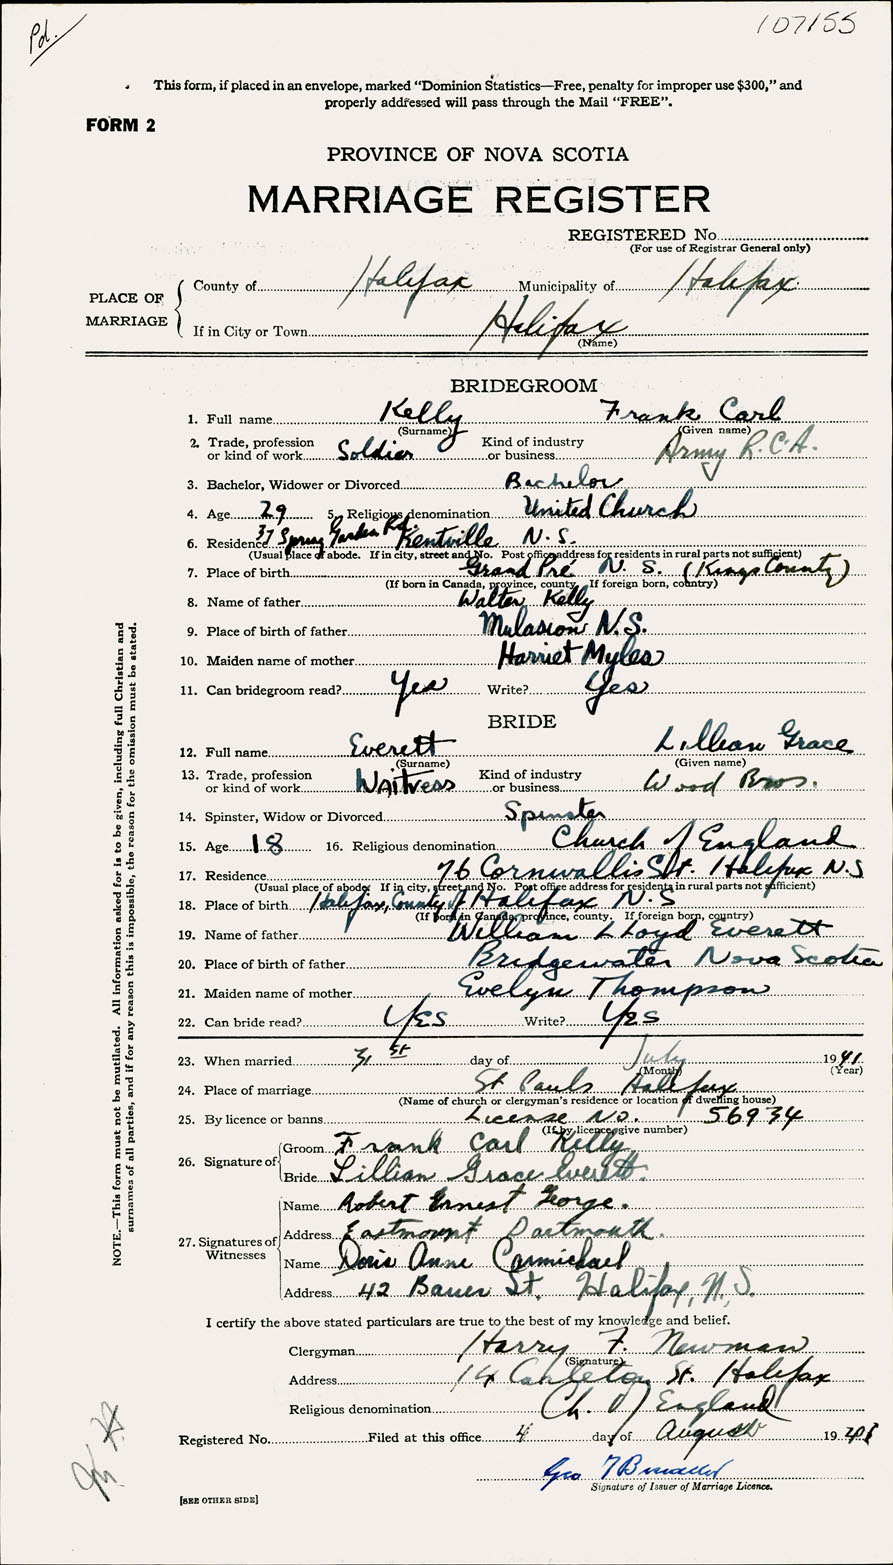 Pd.
107155
This form, if placed in an envelope, marked “Dominion Statistics—Free, penalty for improper use $300,” and
properly addressed will pass through the Mail “FREE”.
FORM 2
PROVINCE OF NOVA SCOTIA
MARRIAGE REGISTER
REGISTERED No.
(For use of Registrar General only)
PLACE OF MARRIAGE
County of Halifax Municipality of Halifax
If in City or Town Halifax
(Name)
BRIDEGROOM
1. Full name Kelly Frank Carl
(Surname) (Given name)
2. Trade, profession or kind of work Soldier Kind of industry or business Army R.C.A.
3. Bachelor, Widower or Divorced Bachelor
4. Age 29 5. Religious denomination United Church
6. Residence 37 Spring Garden Rd. Kentville N.S.
(Usual place of abode. If in city, street and No. Post office address for residents in rural parts not sufficient)
7. Place of birth Grand Pré N.S. (Kings County)
(If born in Canada, province, county. If foreign born, country)
8. Name of father Walter Kelly
9. Place of birth of father N.S.
10. Maiden name of mother Harriet Myles
11. Can bridegroom read? Yes Write? Yes
BRIDE
12. Full name Everett Lillian Grace
(Surname) (Given name)
13. Trade, profession or kind of work Waitress Kind of industry or business Wood Bros.
14. Spinster, Widow or Divorced Spinster
15. Age 18 16. Religious denomination Church of England
17. Residence 76 Cornwallis St. Halifax N.S
(Usual place of abode. If in city, street and No. Post office address for residents in rural parts not sufficient)
18. Place of birth Halifax, County of Halifax N.S
(If born in Canada, province, county. If foreign born, country)
19. Name of father William LLoyd Everett
20. Place of birth of father Bridgewater Nova Scotia
21. Maiden name of mother Evelyn Thompson
22. Can bride read? Yes Write? Yes
23. When married 31st day of July 1941
(Month) (Year)
24. Place of marriage St Pauls Halifax
(Name of church or clergyman's residence or location of dwelling house)
25. By licence or banns License No. 56934
(If by licence, give number)
26. Signature of
Groom Frank Carl Kelly
Bride Lillian Grace Everett.
27. Signatures of Witnesses
Name Robert Ernest George.
Address Eastmount Dartmouth.
Name Doris Anne Carmichael
Address 42 Bauer St. Halifax, N.S.
I certify the above stated particulars are true to the best of my knowledge and belief.
Clergyman Harry F. Newman
(Signature)
Address 14 Carleton St. Halifax
Religious denomination Ch. of England
Registered No. Filed at this office 4 day of August 1941
Geo
Signature of Issuer of Marriage Licence.
[SEE OTHER SIDE]
NOTE.—This form must not be mutilated. All information asked for is to be given, including full Christian and
surnames of all parties, and if for any reason this is impossible, the reason for the omission must be stated.